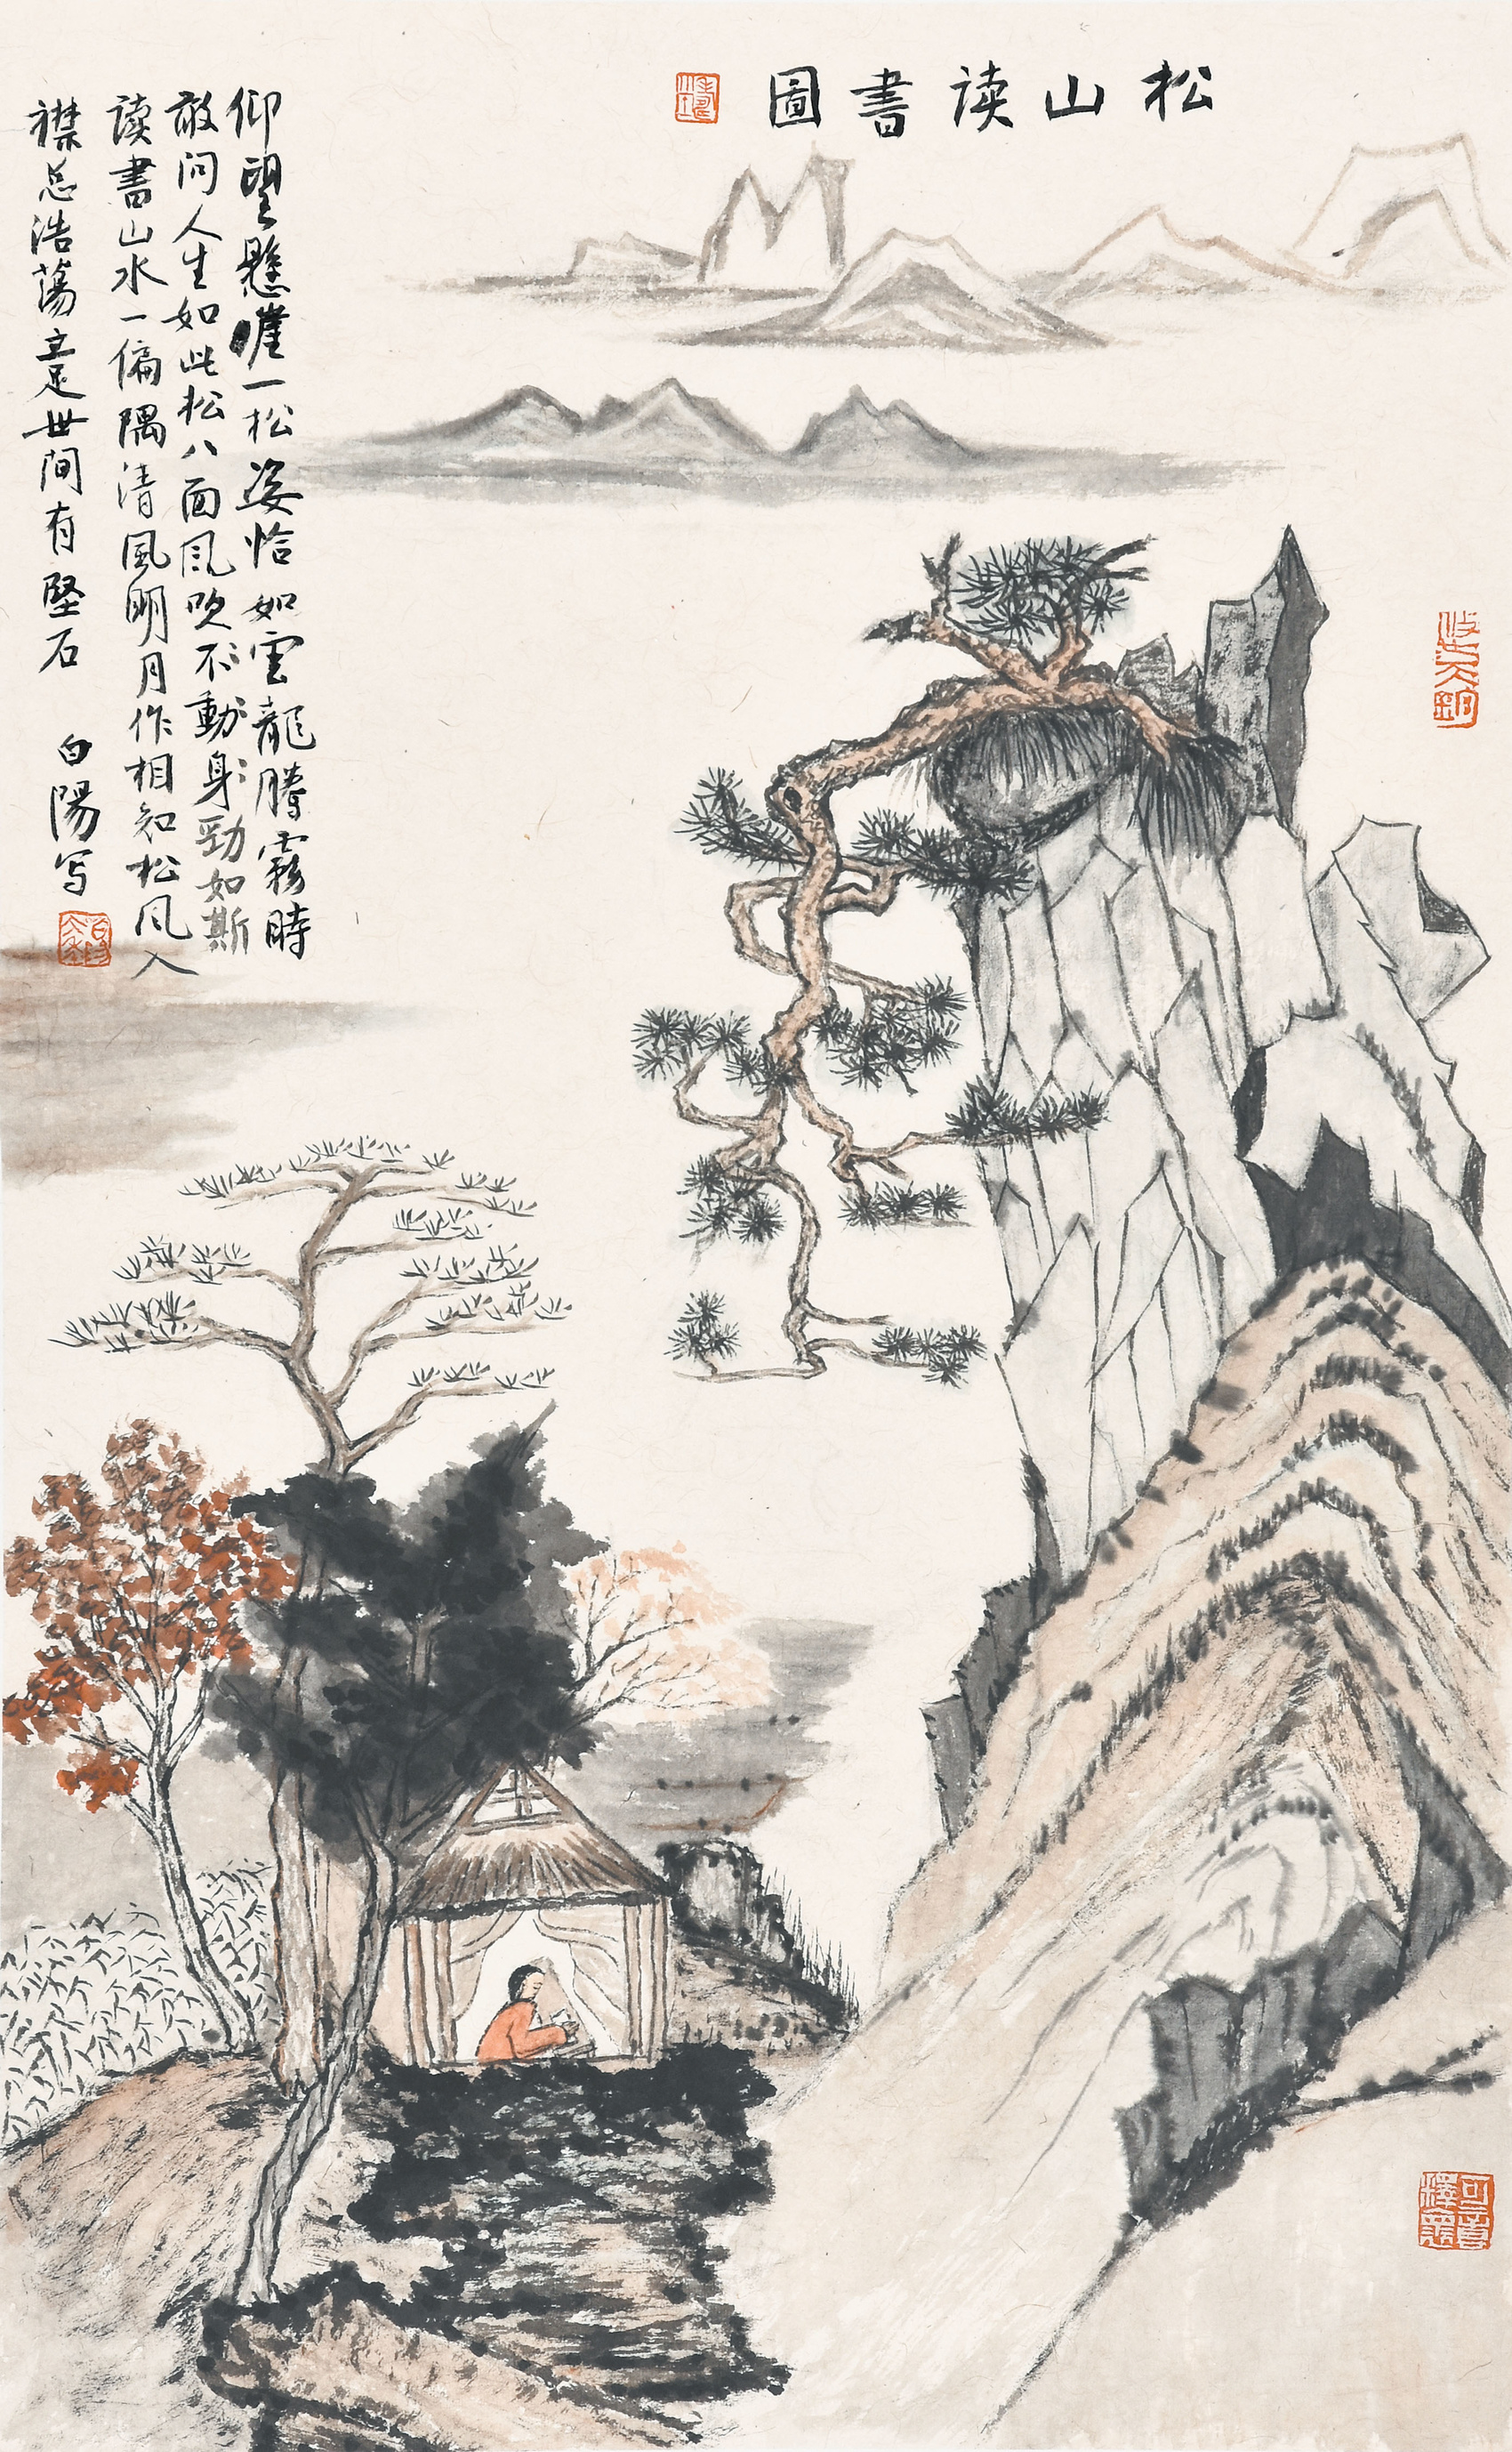 松山读書圖
仰望懸崖一松姿恰如雲龍騰霧時
敢问人生如此松八面风吹不動身勁如斯
读書山水一偏隅清風明月作相知松风入
襟总浩蕩立足世间有堅石 白陽写